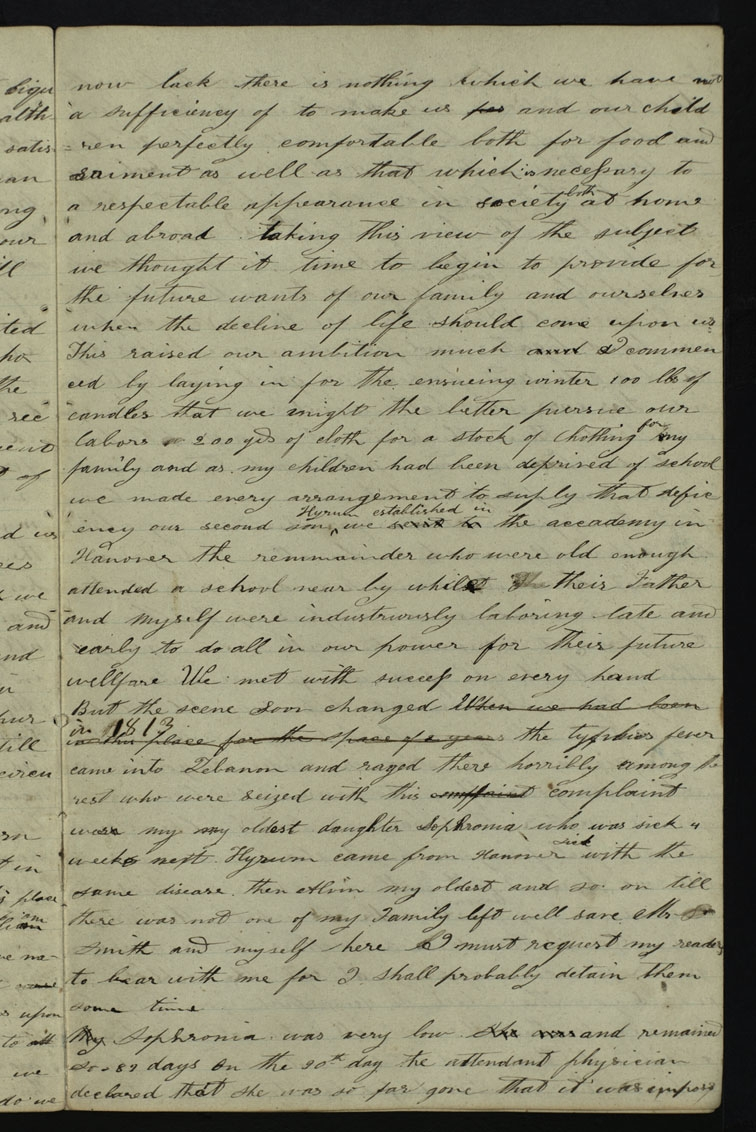 now lack there is nothing which we have not
a sufficiency of to make us for and our child
=ren perfectly comfortable both for food and
raiment as well as that which is necessary to
a respectable appearance in society both at home
and abroad taking this view of the subject
we thought it time to begin to provide for
the future wants of our family and ourselves
when the decline of life should come upon us
This raised our ambition much and I commen
ced by laying in for the ensueing winter 100 lbs of
candles that we might the better pursue our
labors 200 yds of cloth for a stock of Clothing for my
family and as my children had been deprived of school
we made every arrangement to suply that defic
iency our second son Hyrum we established in sent to the accademy in
Hanover the remmainder who were old enough
attended a school near by whilst their Father
and myself were industruously laboring late and
early to do all in our power for their future
wellfare We met with success on every hand
But the scene soon changed When we had been
in 1813
in this place for the space of a years the typhus fever
came into Lebanon and raged there horribly among the
rest who were seized with this complaint complaint
were my my oldest daughter Sophronia who was sick 4
weeks next Hyrum came from Hanover sick with the
same disease then Alvin my oldest and so on till
there was not one of my Family left well save Mr
Smith and myself here I must request my readers
to bear with me for I shall probably detain them
some time
My Sophronia was very low She was and remained
so 89 days on the 90th day the attendant physician
declared that she was so far gone that it was imposs